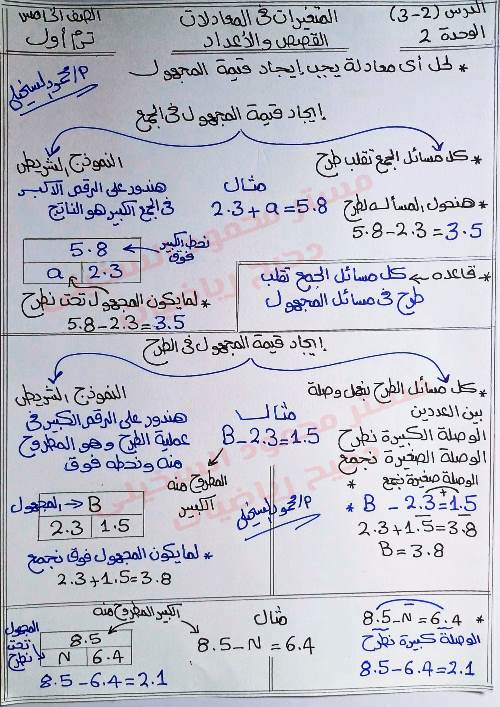 الدرس (2-3)
الوحدة 2
المتغيرات في المعادلات
القصص والأعداد
الصف الخامس
ترم أول
* لحل أى معادلة يجب إيجاد قيمة المجهول
إيجاد قيمة المجهول فى الجمع
* كل مسائل الجمع تقلب طرح
* هنحول المسألة لطرح
5.8-2.3=3.5
مثال
2.3+a=5.8
النموذج الشريطى
هندور على الرقم الاكبر
فى الجمع الكبير هو الناتج
نحط الكبير
فوق
5.8
a 2.3
* لما يكون المجهول تحت نطرح
5.8-2.3=3.5
* قاعدة ← كل مسائل الجمع تقلب
طرح فى مسائل المجهول
إيجاد قيمة المجهول فى الطرح
* كل مسائل الطرح بنعمل وصلة
بين العددين
الوصلة الكبيرة نطرح
الوصلة الصغيرة نجمع
الوصلة صغيرة نجمع
* B - 2.3=1.5
+
2.3+1.5=3.8
B=3.8
مثال
B-2.3=1.5
المطروح منه
الكبير
النموذج الشريطى
هندور على الرقم الكبير فى
عملية الطرح وهو المطروح
منه ونحطه فوق
المجهول → B
2.3 1.5
* لما يكون المجهول فوق نجمع
2.3+1.5=3.8
* 8.5-N=6.4
الوصلة كبيرة نطرح
8.5-6.4=2.1
مثال
8.5-N=6.4
الكبير المطروح منه
8.5
N 6.4
المجهول
تحت
نطرح
8.5-6.4=2.1